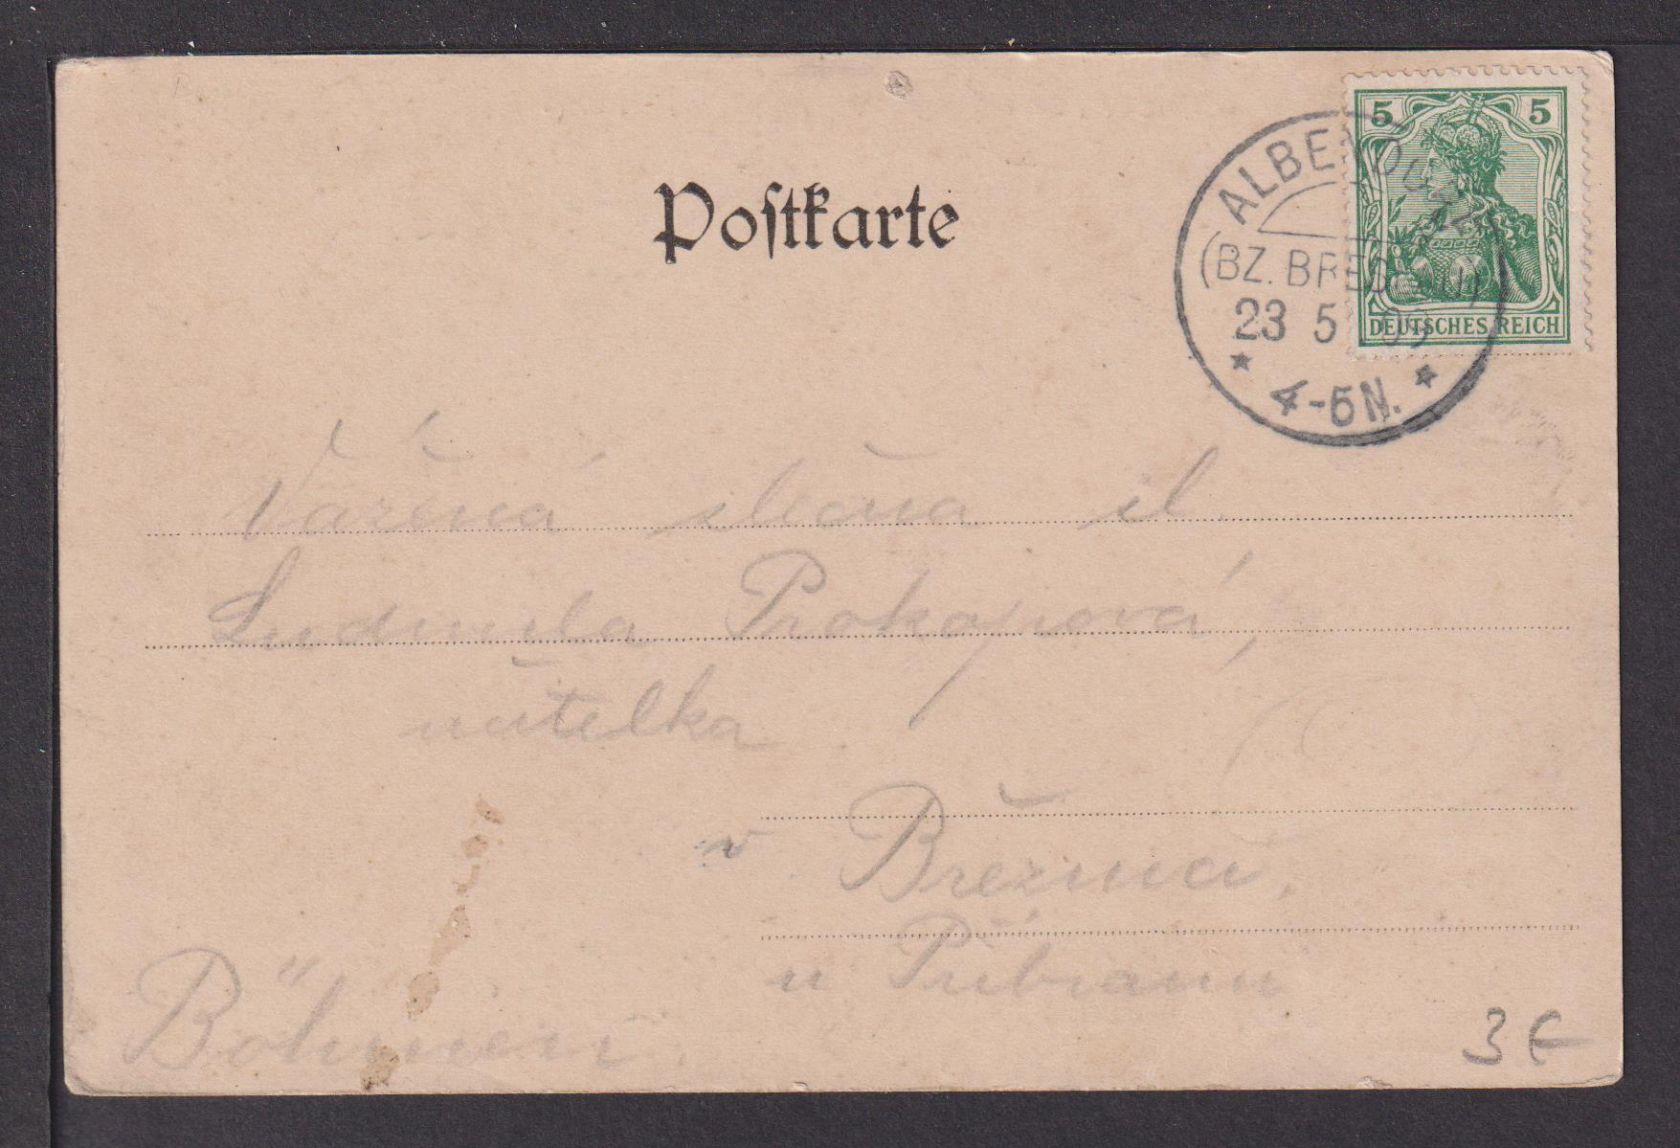 Postkarte
5 5
DEUTSCHES REICH
ALBENDORF
(BZ. BRESLAU)
23 5
4-5N.
Vážená slečna sl.
Ludmila Prokopová,
učitelka
v Březnici,
u Příbrami
Böhmen
3 €